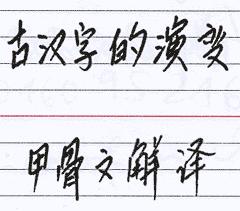 古汉字的演变
甲骨文解译